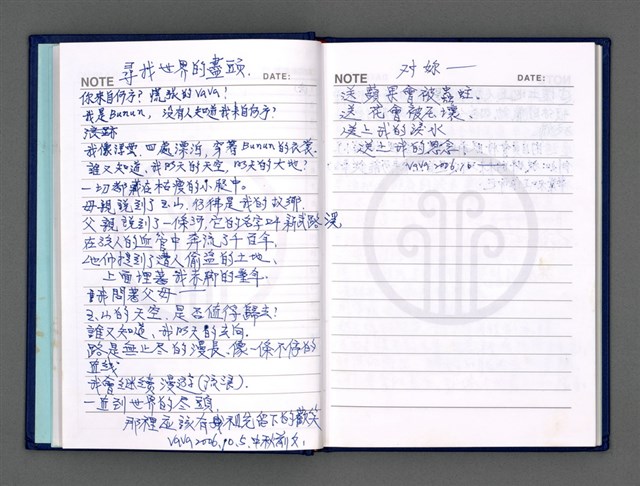 尋找世界的盡頭.
NOTE
DATE:
你來自何方? 慌張的VAVA!
我是Bunun, 沒有人知道我來自何方?
我像浮雲, 四處漂泊, 穿著Bunun的衣裳.
誰又知道、我明天的天空, 明天的大地?
一切都藏在枯瘦的小腿中。
母親說到了玉山, 彷彿是我的故鄉.
父親說到了一條河, 它的名字叫新武路溪
在族人的血管中奔流了千百年,
他們提到了遭人偷盜的土地、
上面埋葬我未來的童年.
請問著父母——
玉山的天空, 是否值得歸去?
誰又知道、我明天的去向.
路是無止盡的漫長、像一條不停的
直线
我會繼續漫游(流浪).
一直到世界的尽頭,
那裡應該有與祖先留下的歡笑
VAVA 2006, 10. 5. 中秋前夕,
对妳——
NOTE
DATE:
送蘋果會被蟲蛀、
送花會被石壞、
送上我的淚水
送上我的思念
VAVA 2006.10.